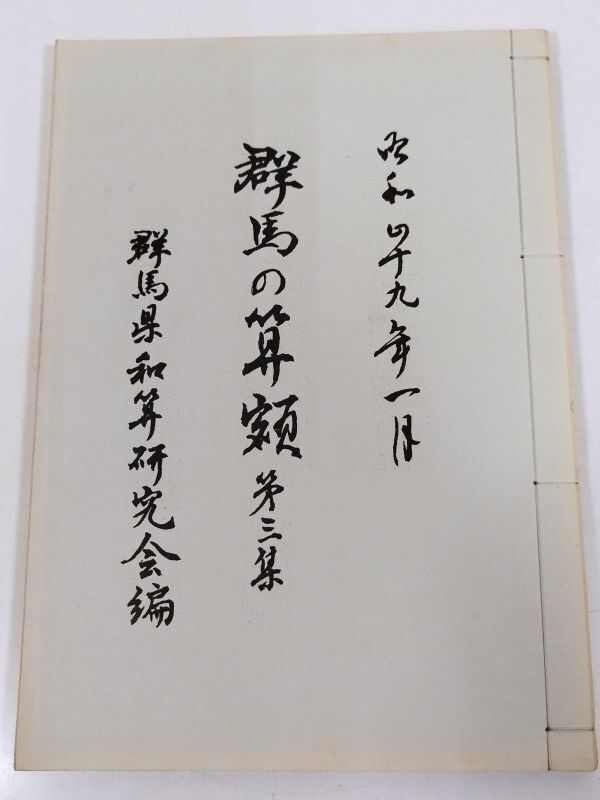 昭和四十九年一月
群馬の算額 第三集
群馬県和算研究会編